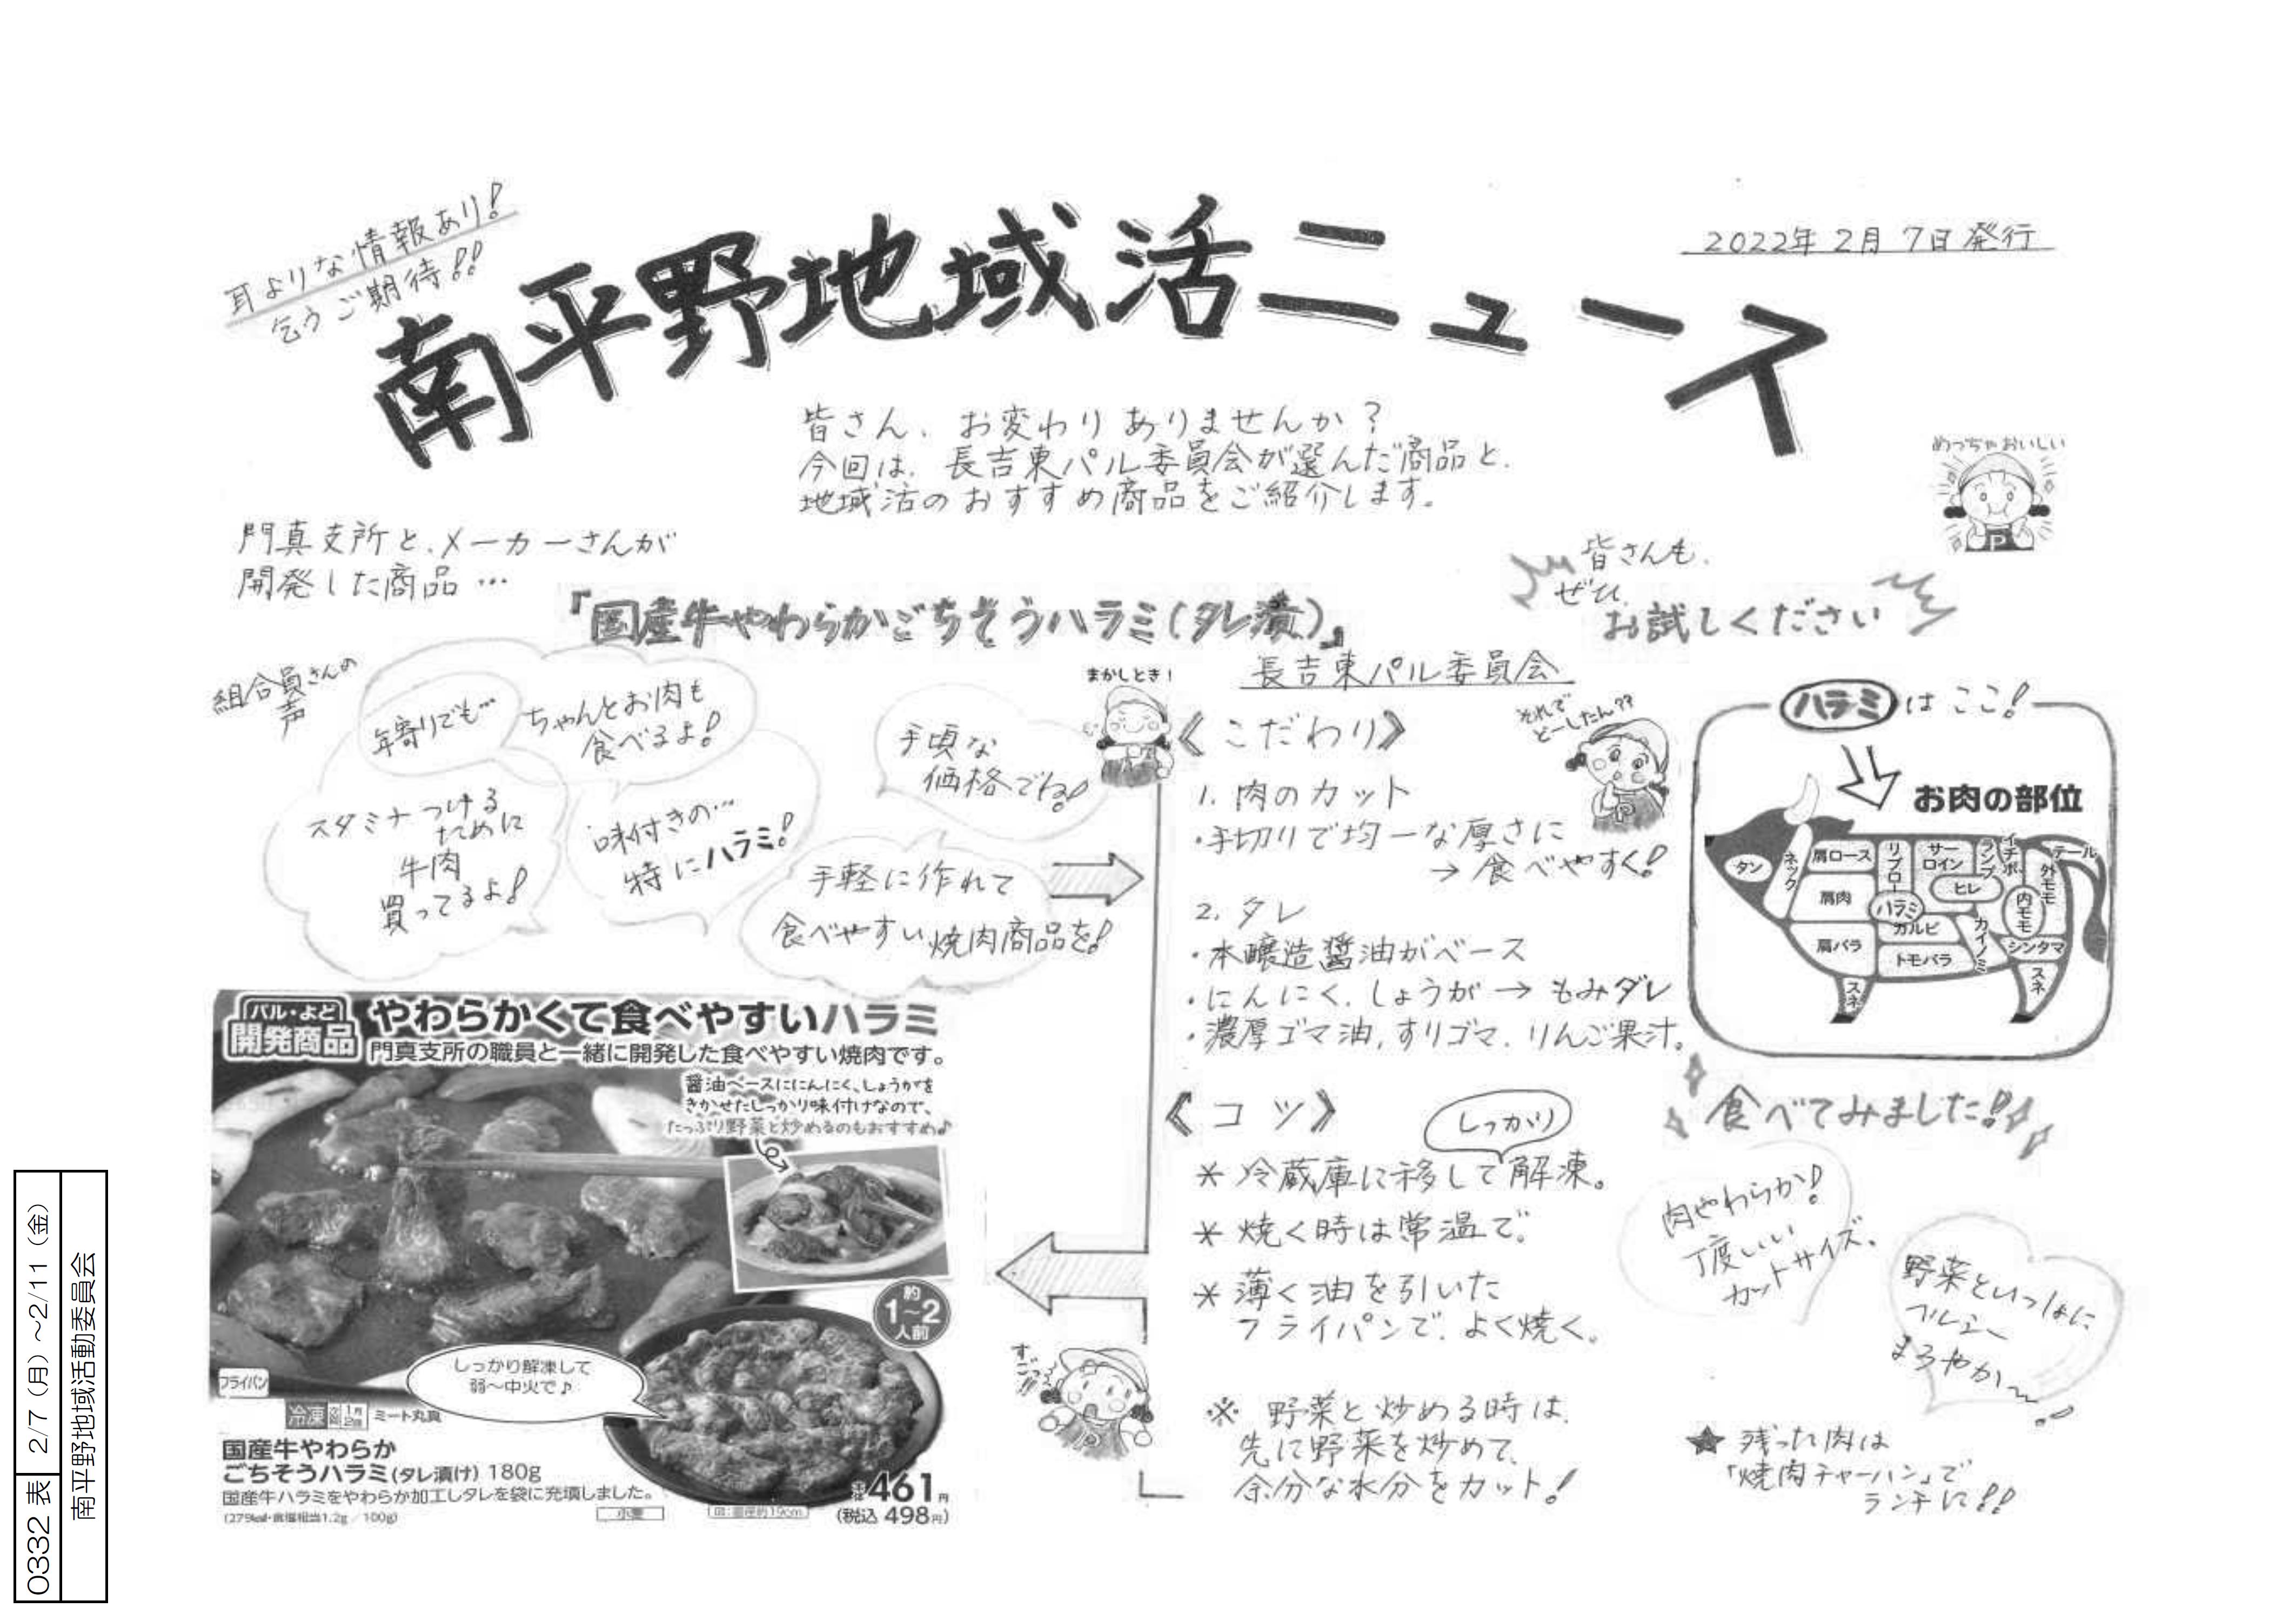 耳よりな情報あり!
乞うご期待!!
南平野地域活ニュース
2022年 2月 7日 発行
皆さん、お変わりありませんか?
今回は、長吉東パル委員会が選んだ商品と、
地域活のおすすめ商品をご紹介します。
めっちゃおいしい
門真支所と、メーカーさんが
開発した商品…
『国産牛やわらかごちそうハラミ(タレ漬)』
皆さんも、
ぜひ
お試しください
組合員さんの
声
年寄りでも…
ちゃんとお肉も
食べるよ!
スタミナつける
ために
牛肉
買ってるよ!
味付きの…
特にハラミ!
手頃な
価格でね!
手軽に作れて
食べやすい焼肉商品を!
まかしとき!
長吉東パル委員会
《こだわり》
それで
どーしたん??
1. 肉のカット
・手切りで均一な厚さに
→ 食べやすく!
2. タレ
・本醸造醤油がベース
・にんにく、しょうが → もみダレ
・濃厚ゴマ油、すりゴマ、りんご果汁。
《コツ》
しっかり
* 冷蔵庫に移して解凍。
* 焼く時は常温で。
* 薄く油を引いた
フライパンで、よく焼く。
※ 野菜と炒める時は、
先に野菜を炒めて、
余分な水分をカット!
すごっ!!
ハラミはここ!
お肉の部位
タン
ネック
肩ロース
リブロース
サーロイン
ランプ
イチボ
テール
外モモ
ヒレ
肩肉
ハラミ
内モモ
カルビ
カイノミ
シンタマ
肩バラ
トモバラ
スネ
スネ
食べてみました!
肉やわらか!
丁度いい
カットサイズ。
野菜といっしょに
ヘルシー
まろやか〜!
★ 残った肉は
「焼肉チャーハン」で
ランチに!!
パル・よど
開発商品
やわらかくて食べやすいハラミ
門真支所の職員と一緒に開発した食べやすい焼肉です。
醤油ベースににんにく、しょうがを
きかせたしっかり味付けなので、
たっぷり野菜と炒めるのもおすすめ♪
約
1〜2
人前
しっかり解凍して
弱〜中火で♪
フライパン
冷凍
ミート丸真
国産牛やわらか
ごちそうハラミ(タレ漬け) 180g
国産牛ハラミをやわらか加工しタレを袋に充填しました。
(279kcal・食塩相当1.2g/100g)
小麦
皿:直径約19cm
本体461円
(税込 498円)
0332 表 2/7(月)〜2/11(金)
南平野地域活動委員会